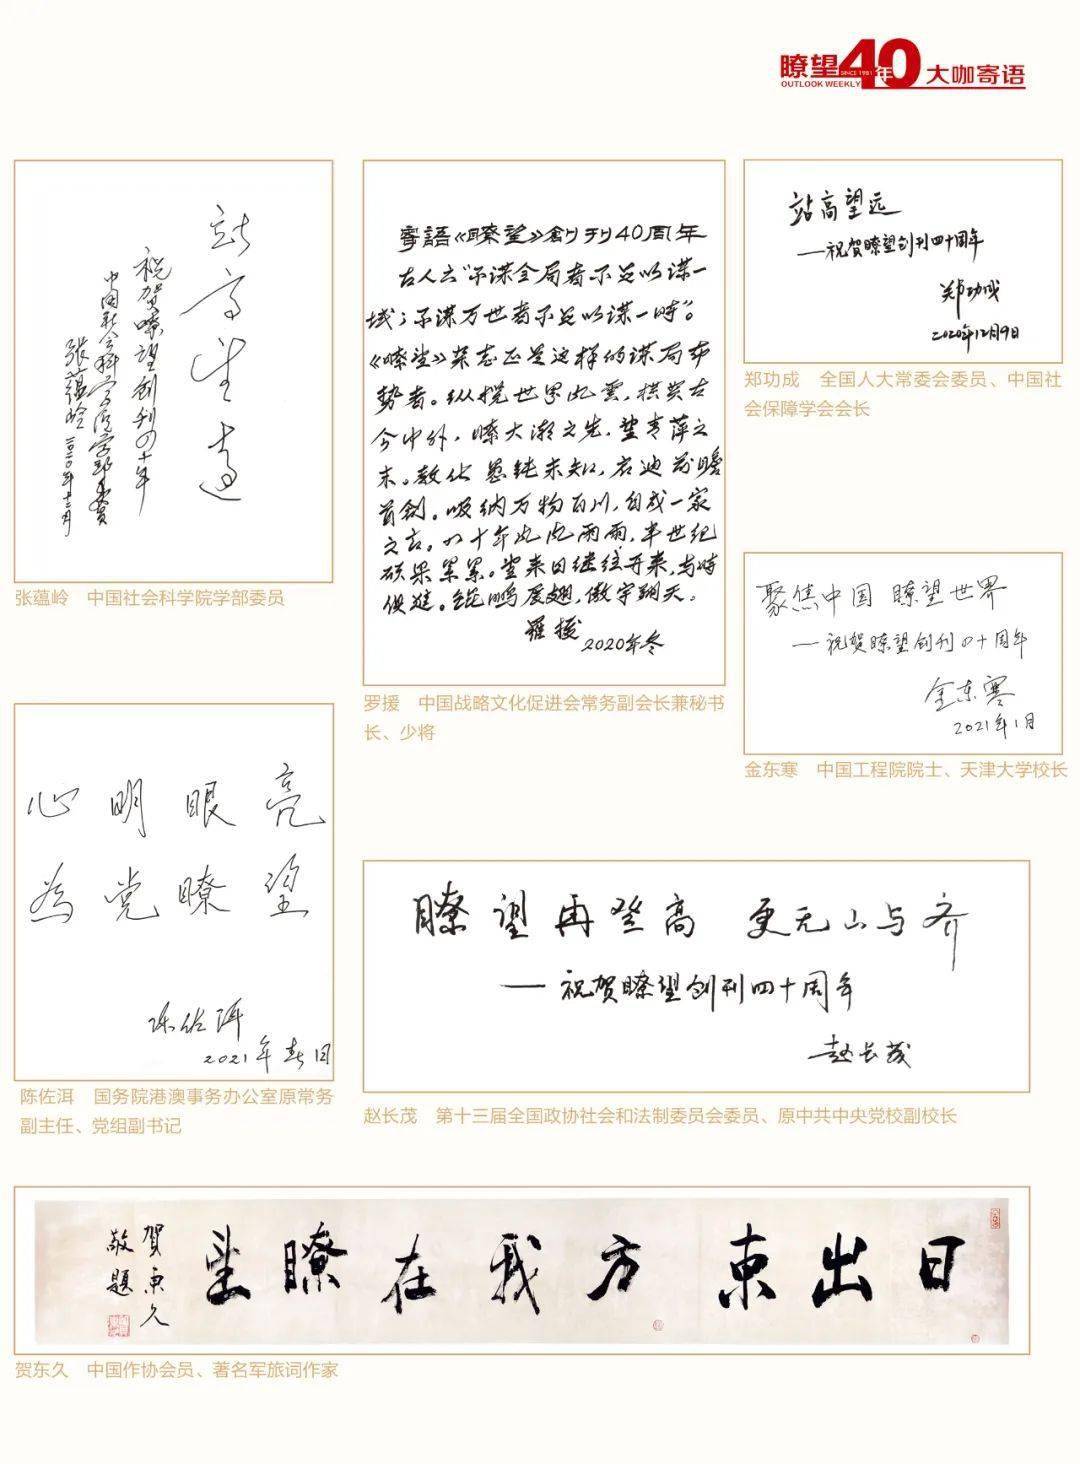 瞭望40年
SINCE 1981
OUTLOOK WEEKLY
大咖寄语
站高望远
祝贺瞭望创刊四十年
中国社会科学院学部委员
张蕴岭 二〇二〇年十二月
张蕴岭 中国社会科学院学部委员
寄語《瞭望》創刊40周年
古人云“不谋全局者不足以谋一
域；不谋万世者不足以谋一时”。
《瞭望》杂志正是这样的谋局布
势者。纵揽世界风雲，横贯古
今中外，瞭大潮之先，望青萍之
末。教化愚钝未知，启迪前瞻
首創。吸纳万物百川，自成一家
之言。四十年风风雨雨，半世纪
硕果累累。望来日继往开来，与时
俱進。鲲鹏展翅，傲宇翔天。
羅援 2020年冬
罗援 中国战略文化促进会常务副会长兼秘书
长、少将
站高望远
——祝贺瞭望创刊四十周年
郑功成
2020年12月9日
郑功成 全国人大常委会委员、中国社
会保障学会会长
聚焦中国 瞭望世界
——祝贺瞭望创刊四十周年
金东寒
2021年1月
金东寒 中国工程院院士、天津大学校长
心明眼亮
為党瞭望
陈佐洱
2021年春日
陈佐洱 国务院港澳事务办公室原常务
副主任、党组副书记
瞭望再登高 更无山与齐
——祝贺瞭望创刊四十周年
赵长茂
赵长茂 第十三届全国政协社会和法制委员会委员、原中共中央党校副校长
日出東方我在瞭望
賀東久
敬題
贺东久 中国作协会员、著名军旅词作家